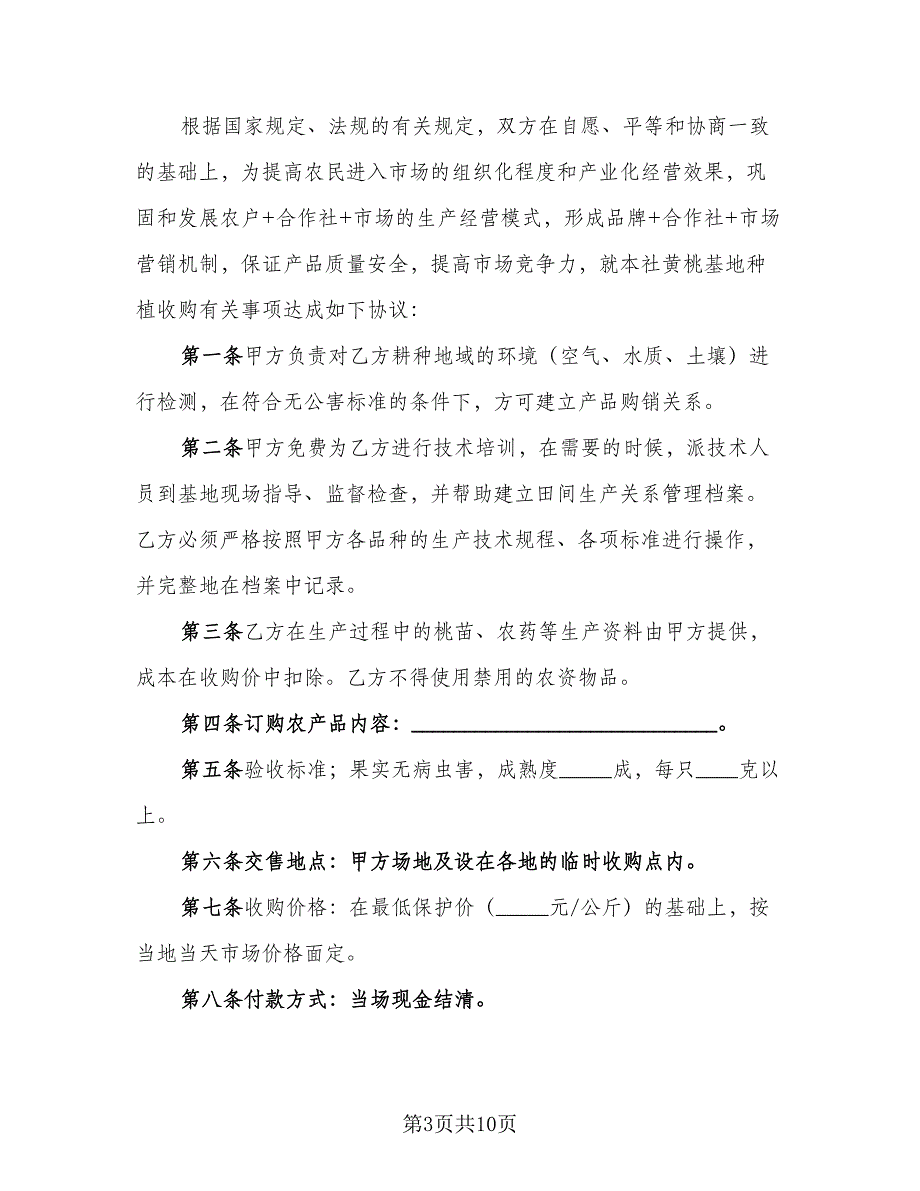 根据国家规定、法规的有关规定，双方在自愿、平等和协商一致
的基础上，为提高农民进入市场的组织化程度和产业化经营效果，巩
固和发展农户+合作社+市场的生产经营模式，形成品牌+合作社+市场
营销机制，保证产品质量安全，提高市场竞争力，就本社黄桃基地种
植收购有关事项达成如下协议：
第一条甲方负责对乙方耕种地域的环境（空气、水质、土壤）进
行检测，在符合无公害标准的条件下，方可建立产品购销关系。
第二条甲方免费为乙方进行技术培训，在需要的时候，派技术人
员到基地现场指导、监督检查，并帮助建立田间生产关系管理档案。
乙方必须严格按照甲方各品种的生产技术规程、各项标准进行操作，
并完整地在档案中记录。
第三条乙方在生产过程中的桃苗、农药等生产资料由甲方提供，
成本在收购价中扣除。乙方不得使用禁用的农资物品。
第四条订购农产品内容：_____________________________。
第五条验收标准；果实无病虫害，成熟度_____成，每只____克以
上。
第六条交售地点：甲方场地及设在各地的临时收购点内。
第七条收购价格：在最低保护价（_____元/公斤）的基础上，按
当地当天市场价格面定。
第八条付款方式：当场现金结清。
第3页共10页